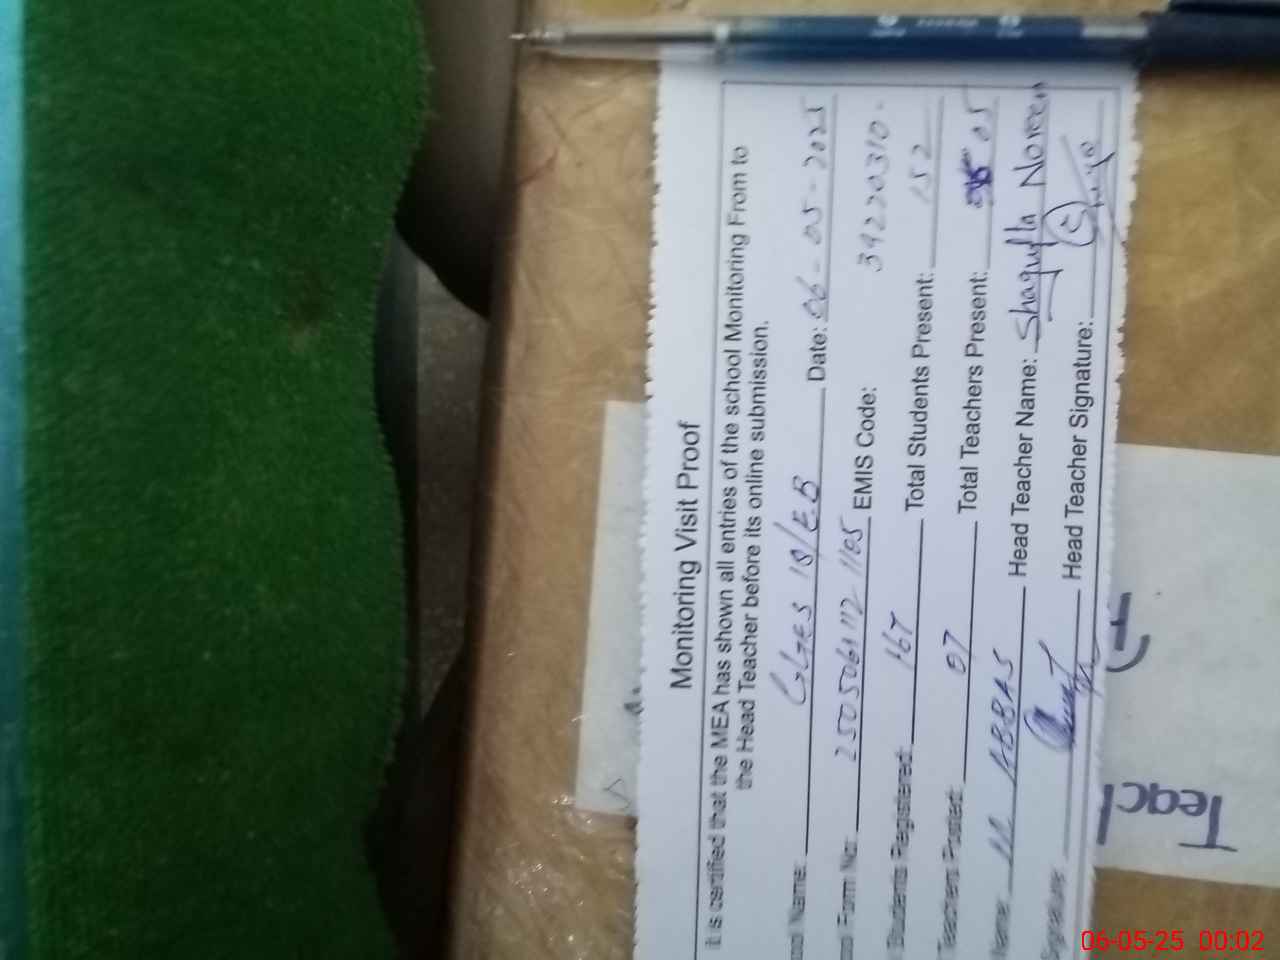 Monitoring Visit Proof
it is certified that the MEA has shown all entries of the school Monitoring From to
the Head Teacher before its online submission.
Name: GGES 18/E.B Date: 06-05-2025
Form No: EMIS Code: 39220310-
Students Registered: 167 Total Students Present: 152
Teachers Posted: 07 Total Teachers Present: 05
Name: M ABBAS Head Teacher Name: Shagufta Noreen
Signature: Head Teacher Signature:
Teach
06-05-25 00:02